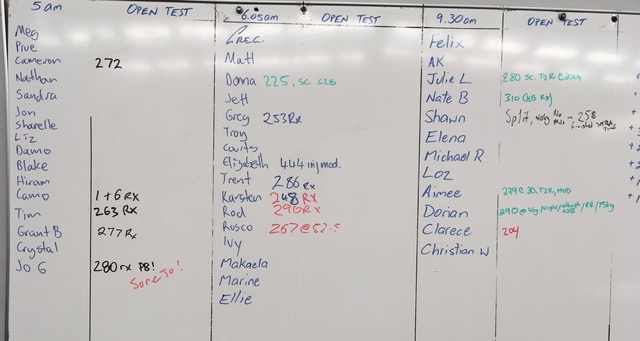 5am OPEN TEST
Meg
Prue
Cameron 272
Nathan
Sandra
Jon
Sharelle
Liz
Damo
Blake
Hiram
Camo 1+6 RX
Tim 263 RX
Grant B 277 Rx
Crystal
Jo G 280 rx PB!
Sore Jo!
6.05am OPEN TEST
Greg
Matt
Donna 225, sc. C2B
Jeff
Greg 253 Rx
Troy
Courts
Elizabeth 444 inj mod.
Trent 286 Rx
Karsten 248 RX
Rod 290 RX
Rosco 267 @ 52.5
Ivy
Makaela
Marine
Ellie
9.30am OPEN TEST
Felix
AK
Julie L 280 Sc. T2R
Nate B 310 (KB RX)
Shawn Split, - 258
Elena
Michael R
Loz
Aimee 279 @ 30, T2R, MOD
Dorian 290 @
Clarece 204
Christian W